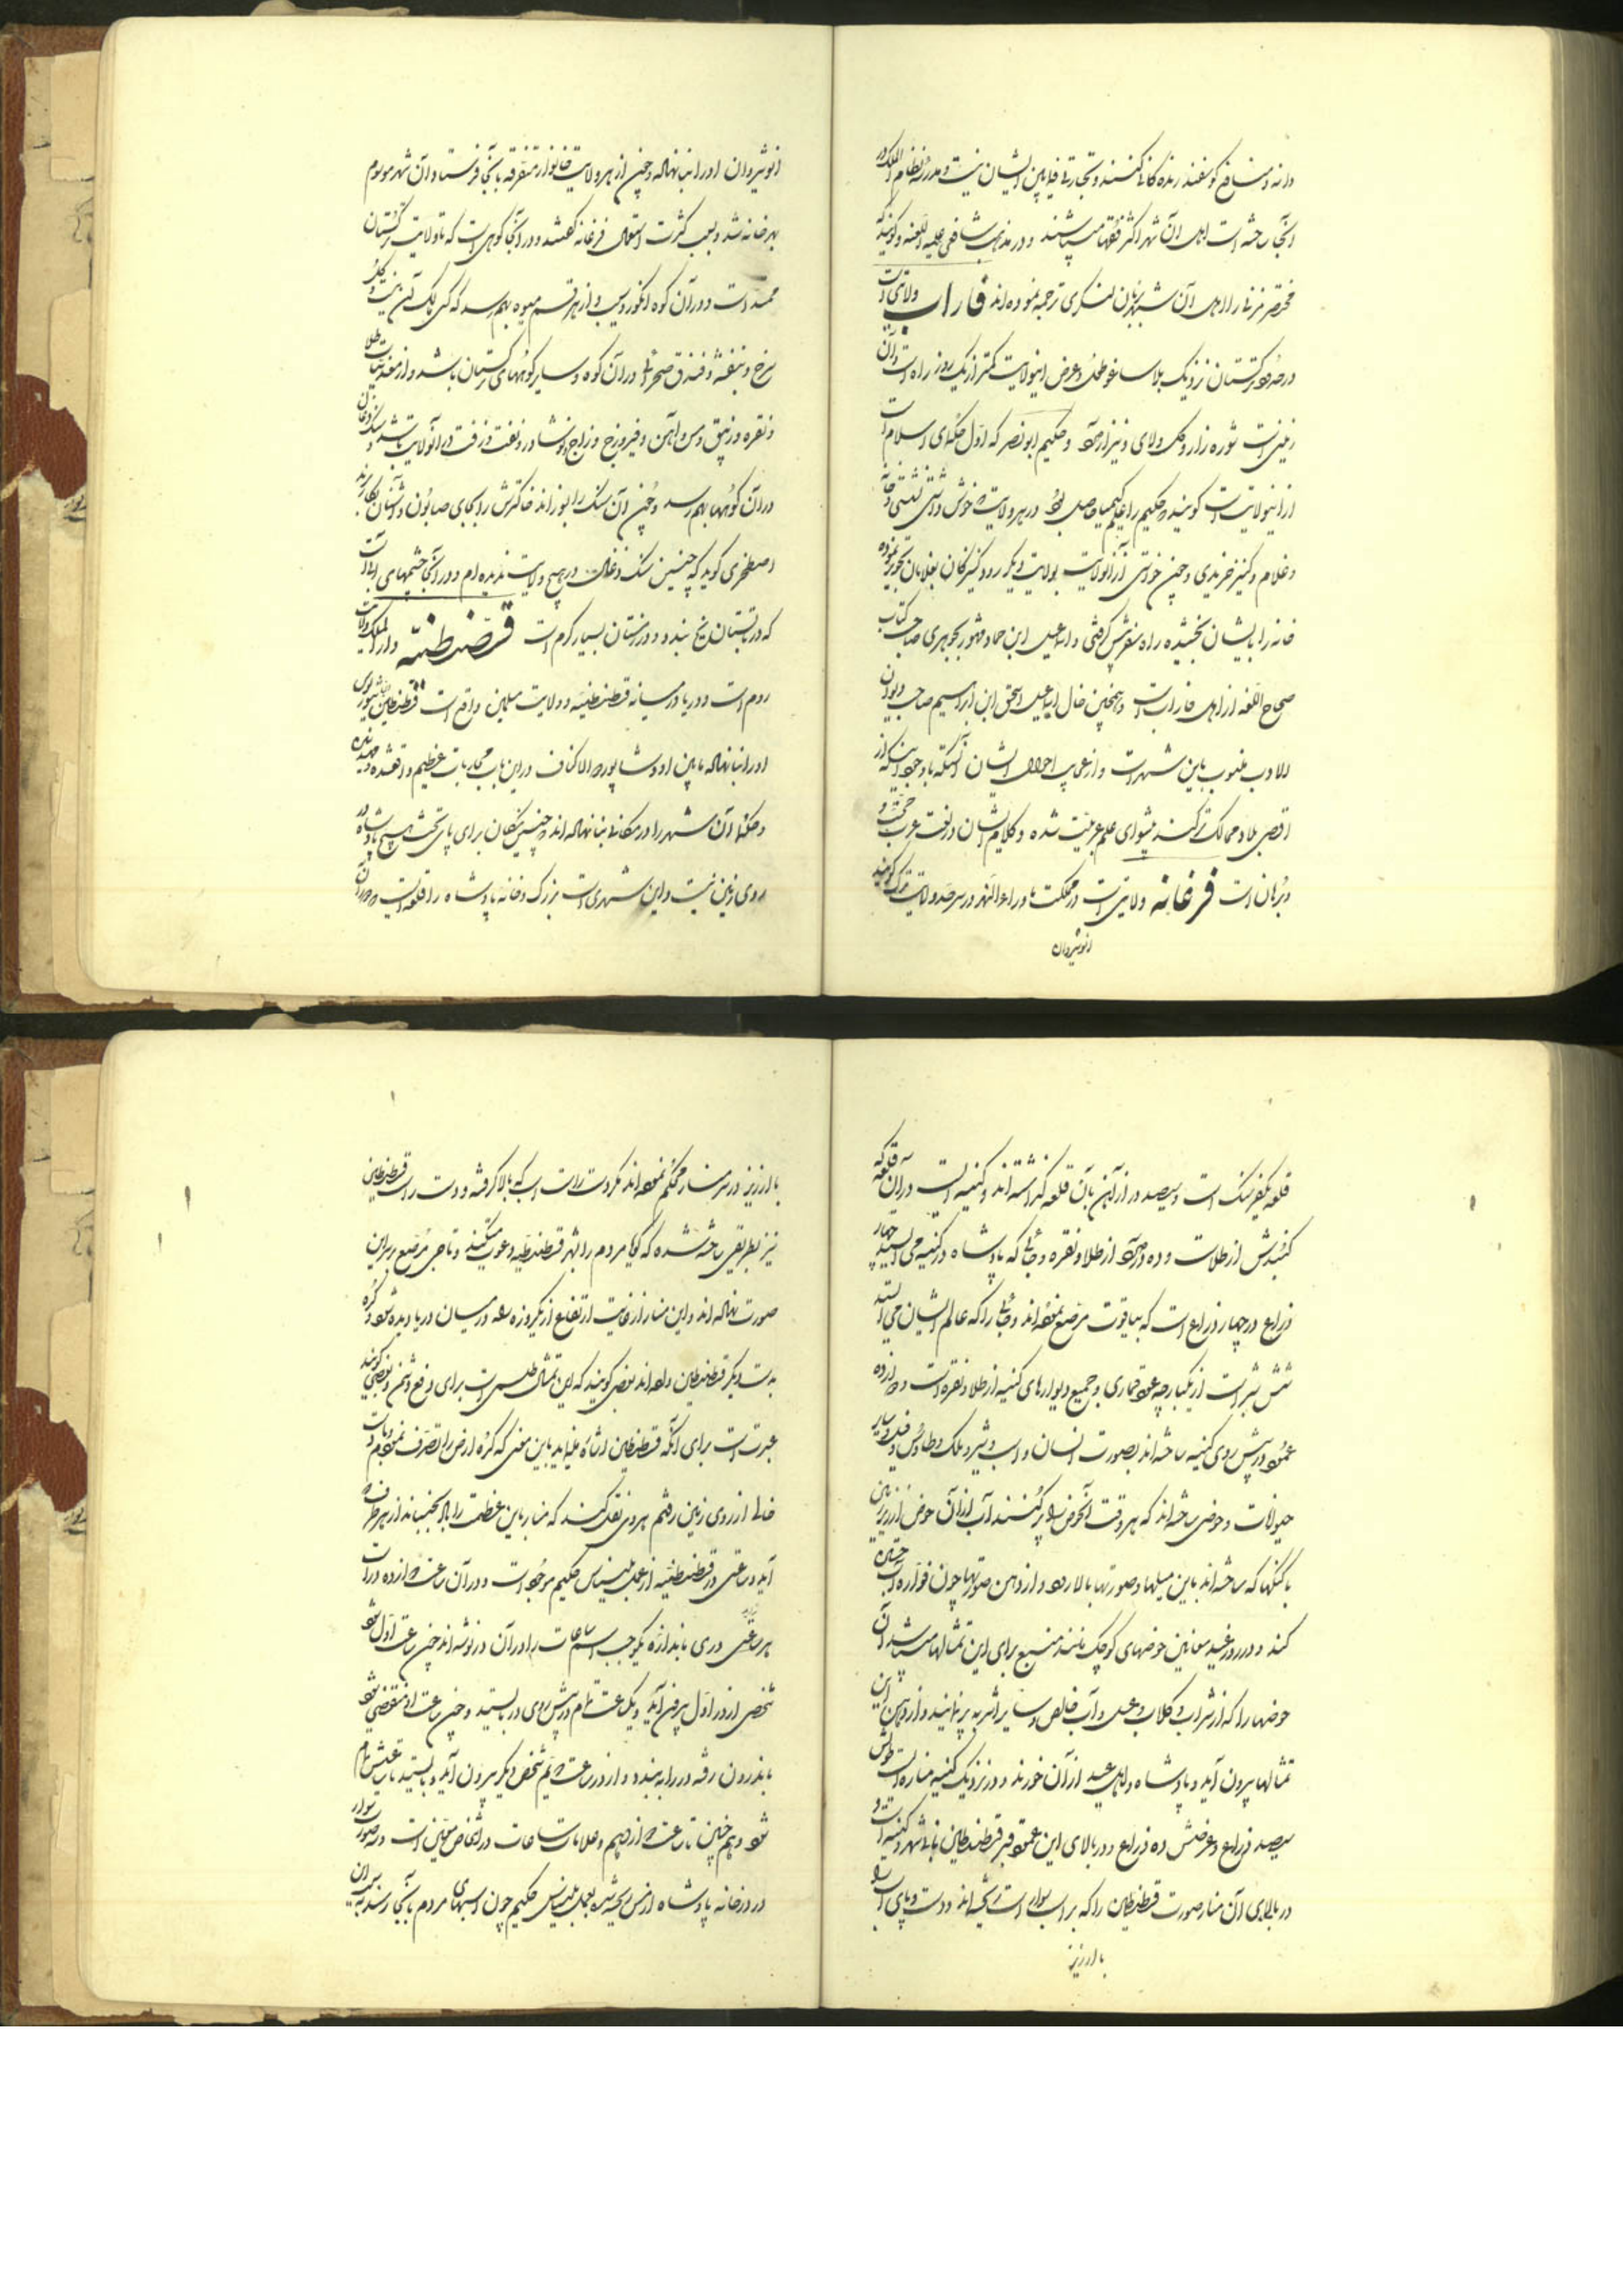 دارند و منافع کوسفند زنده کانی کنند و تجارتی فیمابین ایشان نیست و مدرسه نظام الملک در
آنجا ساخته است اهل آن شهر اکثر فقها میباشند و در مذهب شافعی علیه اللعنه و کویند که
مختصر مزنی را اهل آن شهر بزبان لسکری ترجمه نموده اند فاراب ولایتی است
در حدود ترکستان نزدیک بلاساغو طول و عرض اینولایت کمتر از یک روز راه است و آن
زمینی است شوره زار و کل ولای و نیزار دارد و حکیم ابو نصر که اول حکمای اسلام است
از اینولایت است کویند حکیم را علم کیمیا حاصل بود در هر ولایت خوش داشتی نشستی و خانه
و غلام و کنیز خریدی و چون خواستی از آنولایت بولایت دیکر رود کنیزکان بغلامان تجویز نموده
خانه را بایشان بخشیده راه سفر پیش کرفتی و اسماعیل ابن حماد مشهور بجوهری صاحب کتاب
صحاح اللغه از اهل فاراب است و همچنین خال اسماعیل اسحق ابن ابراهیم صاحب دیوان
الادب منسوب باین شهر است و از عجایب احوال ایشان آنستکه باوجود اینکه از
اقصی بلاد ممالک ترکند پیشوای علم عربیت شده و کلام ایشان در لغت عرب حجت و
برهان است فرغانه ولایتی است در مملکت ماوراءالنهر در سرحد ولایت ترک کویند
انوشیروان
انوشیروان او را بنا نهاده و چون از هر ولایت خانوار متفرقه بآنجا فرستاد آن شهر موسوم
بهرخانه شد و بسبب کثرت استعمال فرغانه کفتند و در آنجا کوهی است که تا ولایت ترکستان
ممتد است و در آن کوه انکور و سیب و از هر قسم میوه بهم رسد که کسی مالک آن نیست و کل
سرخ و بنفشه و فندق صحرائی در آن کوه و سایر کوههای ترکستان باشد و از معدنیات طلا
و نقره و زیبق و مس و آهن و فیروزج و زاج و نوشادر و نفت و زفت در آنولایت باشد و سنک زغال
در آن کوهها بهم رسد و چون آن سنک را بسوزانند خاکسترش را بجای صابون و اشنان بکار برند
اصطخری کوید که چنین سنک زغال در هیچ ولایت ندیده ام و در آنجا چشمهای آب است
که در تابستان یخ بندد و در زمستان بسیار کرم است قسطنطنیه دار الملک ولایت
روم است و دریا در میانه قسطنطنیه و ولایت مسلمین واقع است قسطنطین
او را بنا نهاده مابین او و شاپور ذو الاکتاف در این باب محاربات عظیم واقعشده
و حکما آن شهر را در مکانی بنا نهاده اند که چنین مکان برای پای تخت هیچ پادشاه در
روی زمین نیست و این شهری است بزرک و خانه پادشاه را قلعه است و دور آن
قلعه یکفرسنک است و سیصد در از آهن بآن قلعه کذاشته اند و کنیسه است در آن قلعه که
کنبدش از طلا است و ده در دارد از طلا و نقره و جائی که پادشاه در کنیسه می ایستد چهار
ذراع در چهار ذراع است که بیاقوت مرصع نموده اند و جائی را که عالم ایشان می ایستد
شش شبر است از یکپارچه عود قماری و جمیع دیوارهای کنیسه از طلا و نقره است و دوازده
عمود در پیش روی کنیسه ساخته اند بصورت انسان و اسب و شیر و ملک و طاوس و فیل و سایر
حیوانات و حوضی ساخته اند که هر وقت آنحوض را پر کنند آب از آن حوض از زیر زمین
با کنکها که ساخته اند باین میلها و صورتها بالا رود و از دهن صورتها چون فواره آب جستن
کند و در روز عید معابین حوضهای کوچک مانند منبع برای این تمثالها میباشد آن
حوضها را که از شراب و کلاب و عسل و آب خالص و سایر اشربه پر نمایند و از دهن این
تمثالها بیرون آید و پادشاه و اهل عید از آن خورند و در نزدیک کنیسه مناره است طولش
سیصد ذراع و عرضش ده ذراع و در بالای این عمود قبر قسطنطین بانی شهر و کنیسه است و
در بالای آن منار صورت قسطنطین را که بر اسب سوار است ریخته اند و دست و پای اسب
با ارزیز
با ارزیز در سر منار محکم نموده اند مکر دست راست اسب که بالا کرفته و دست راست قسطنطین
نیز بطریقی ساخته شده که کویا مردم را بشهر قسطنطنیه دعوت میکند و تاجی مرصع بر سر این
صورت نهاده اند و این منار از غایت ارتفاع از یکروزه راه در میان دریا دیده شود و کره
بدست دیکر قسطنطین داده اند بعضی کویند که این تمثال طلسمی است برای دفع دشمن و بعضی کویند
عبرت است برای آنکه قسطنطین اشاره مینماید باین معنی که کره ارض را تصرف نمودم و دست
خالی از روی زمین رفتم هروی نقل کند که منار باین عظمت را باد بجنبباند از هر طرف که
آید و ساعتی در قسطنطنیه از عمل بلیناس حکیم موجود است و در آن ساعت دوازده در است
هر ساعتی دری باندازه یکوجب اسم ساعات را در آن در نوشته اند چون ساعت اول شود
شخصی از در اول بیرون آید و یکساعت تمام در پیش روی در بایستد و چون ساعت او منقضی شود
باندرون رفته در را ببندد و از در ساعت دویم شخص دیکر بیرون آید و بایستد تا ساعتش تمام
شود و هم چنین تا ساعت دوازدهم و علامات ساعات در اشخاص معین است و سه صورت سوار
در درخانه پادشاه از مس ریخته شده بعمل بلیناس حکیم چون اسبهای مردم بآنجا رسند